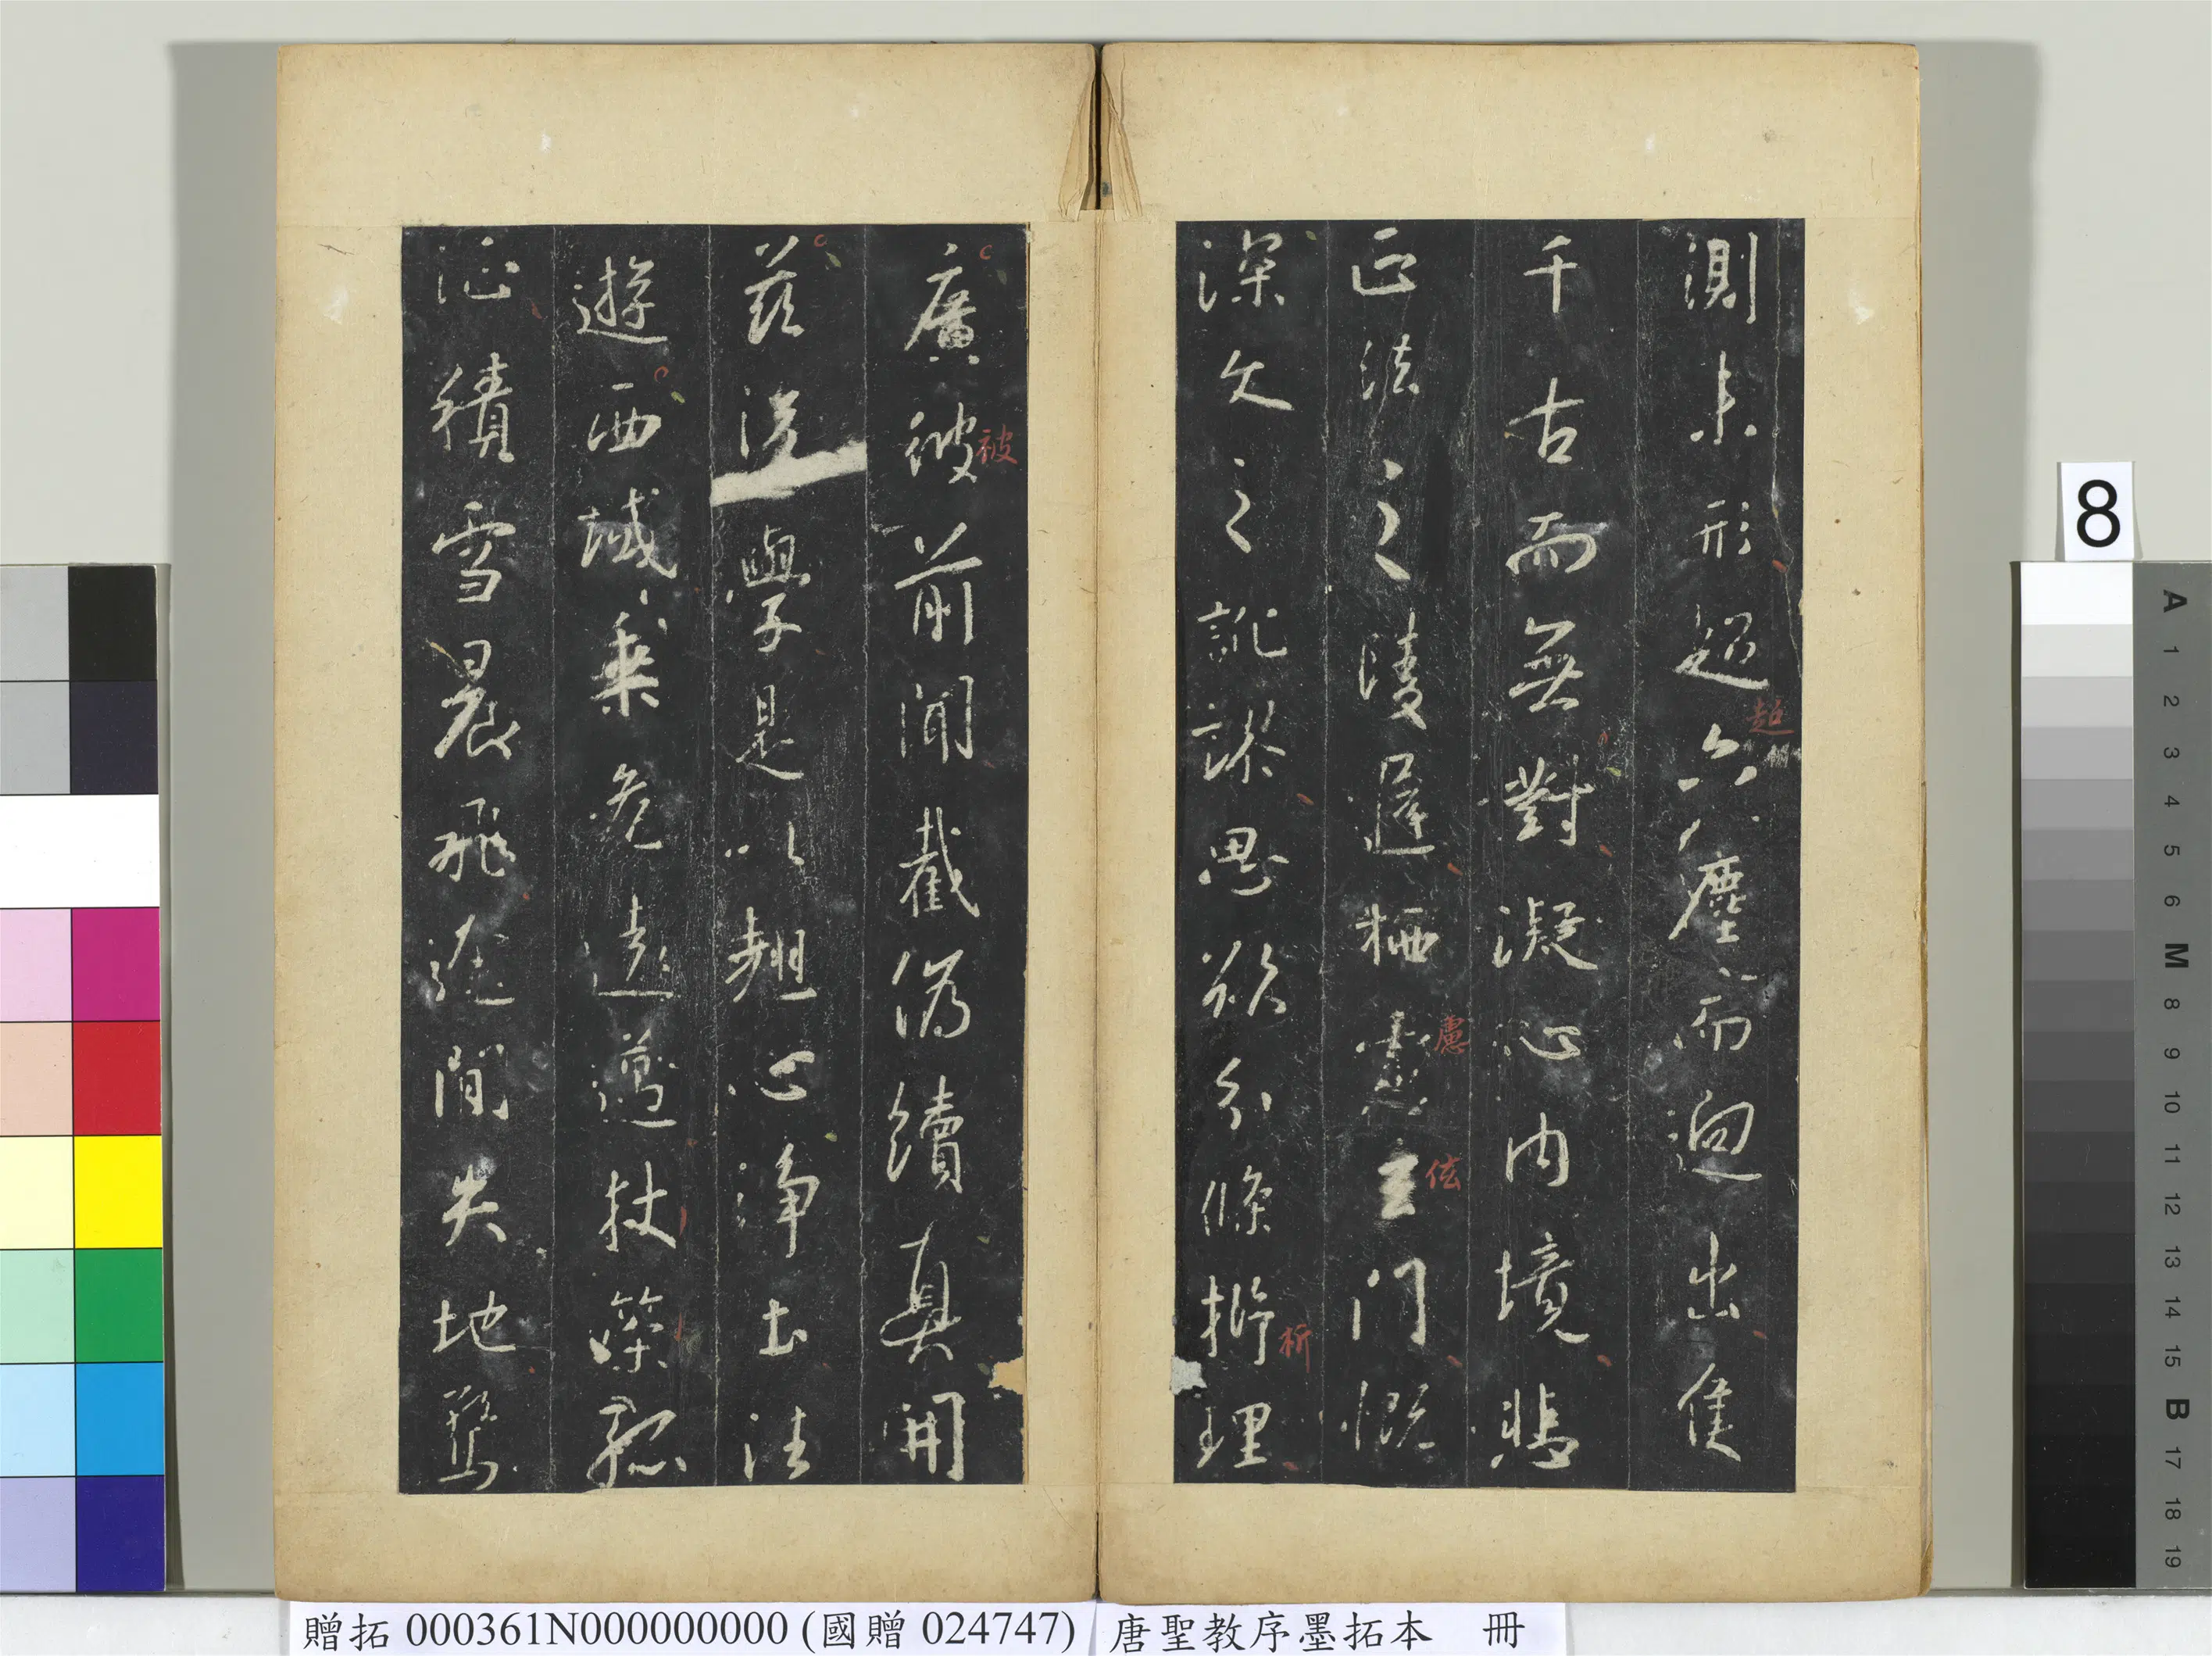 測未形超六塵而迥出隻
超
千古而無對凝心內境悲
正法之陵遲栖慮玄門慨
慮
伭
深文之訛謬思欲分條析理
析
廣彼前聞截偽續真開
被
茲後學是以翹心淨土法
遊西域乘危遠邁杖策孤
征積雪晨飛途間失地驚
8
A 1 2 3 4 5 6 M 8 9 10 11 12 13 14 15 B 17 18 19
贈拓 000361N000000000 (國贈 024747)
唐聖教序墨拓本 冊